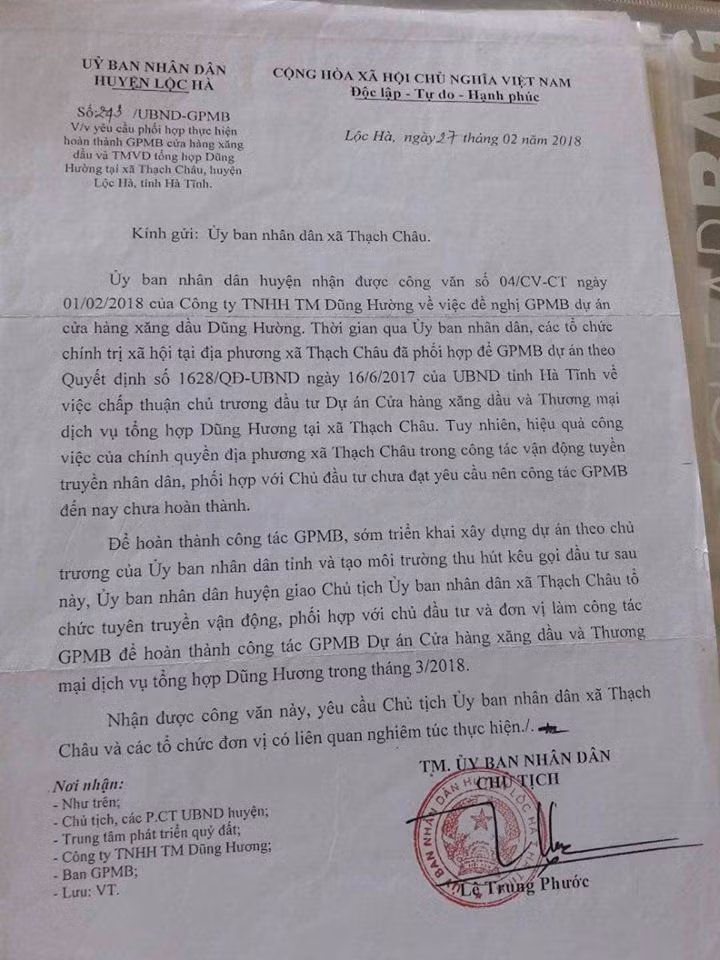 UỶ BAN NHÂN DÂN
HUYỆN LỘC HÀ
CỘNG HÒA XÃ HỘI CHỦ NGHĨA VIỆT NAM
Độc lập - Tự do - Hạnh phúc
Số: 243 /UBND-GPMB
V/v yêu cầu phối hợp thực hiện
hoàn thành GPMB cửa hàng xăng
dầu và TMVD tổng hợp Dũng
Hường tại xã Thạch Châu, huyện
Lộc Hà, tỉnh Hà Tĩnh.
Lộc Hà, ngày 27 tháng 02 năm 2018
Kính gửi: Ủy ban nhân dân xã Thạch Châu.
Ủy ban nhân dân huyện nhận được công văn số 04/CV-CT ngày
01/02/2018 của Công ty TNHH TM Dũng Hường về việc đề nghị GPMB dự án
cửa hàng xăng dầu Dũng Hường. Thời gian qua Ủy ban nhân dân, các tổ chức
chính trị xã hội tại địa phương xã Thạch Châu đã phối hợp để GPMB dự án theo
Quyết định số 1628/QĐ-UBND ngày 16/6/2017 của UBND tỉnh Hà Tĩnh về
việc chấp thuận chủ trương đầu tư Dự án Cửa hàng xăng dầu và Thương mại
dịch vụ tổng hợp Dũng Hương tại xã Thạch Châu. Tuy nhiên, hiệu quả công
việc của chính quyền địa phương xã Thạch Châu trong công tác vận động tuyền
truyền nhân dân, phối hợp với Chủ đầu tư chưa đạt yêu cầu nên công tác GPMB
đến nay chưa hoàn thành.
Để hoàn thành công tác GPMB, sớm triển khai xây dựng dự án theo chủ
trương của Ủy ban nhân dân tỉnh và tạo môi trường thu hút kêu gọi đầu tư sau
này, Ủy ban nhân dân huyện giao Chủ tịch Ủy ban nhân dân xã Thạch Châu tổ
chức tuyên truyền vận động, phối hợp với chủ đầu tư và đơn vị làm công tác
GPMB để hoàn thành công tác GPMB Dự án Cửa hàng xăng dầu và Thương
mại dịch vụ tổng hợp Dũng Hương trong tháng 3/2018.
Nhận được công văn này, yêu cầu Chủ tịch Ủy ban nhân dân xã Thạch
Châu và các tổ chức đơn vị có liên quan nghiêm túc thực hiện./.
Nơi nhận:
- Như trên;
- Chủ tịch, các P.CT UBND huyện;
- Trung tâm phát triển quỹ đất;
- Công ty TNHH TM Dũng Hương;
- Ban GPMB;
- Lưu: VT.
TM. ỦY BAN NHÂN DÂN
CHỦ TỊCH
Lê Trung Phước